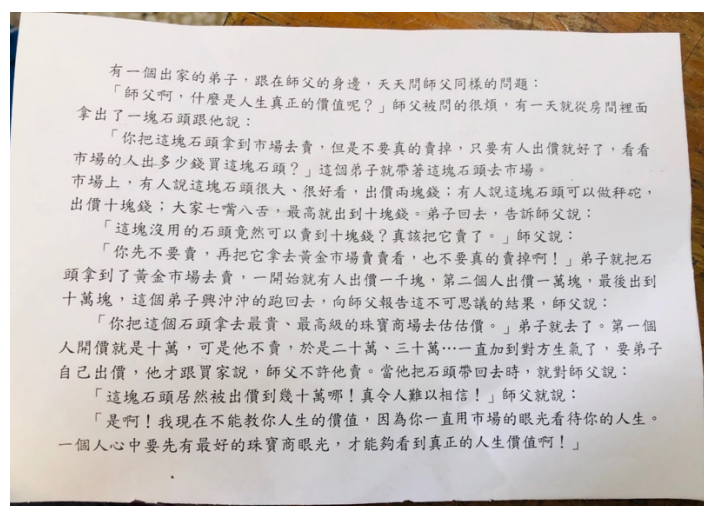 有一個出家的弟子，跟在師父的身邊，天天問師父同樣的問題：
「師父啊，什麼是人生真正的價值呢？」師父被問的很煩，有一天就從房間裡面
拿出了一塊石頭跟他說：
「你把這塊石頭拿到市場去賣，但是不要真的賣掉，只要有人出價就好了，看看
市場的人出多少錢買這塊石頭？」這個弟子就帶著這塊石頭去市場。
市場上，有人說這塊石頭很大、很好看，出價兩塊錢；有人說這塊石頭可以做秤砣，
出價十塊錢；大家七嘴八舌，最高就出到十塊錢。弟子回去，告訴師父說：
「這塊沒用的石頭竟然可以賣到十塊錢？真該把它賣了。」師父說：
「你先不要賣，再把它拿去黃金市場賣賣看，也不要真的賣掉啊！」弟子就把石
頭拿到了黃金市場去賣，一開始就有人出價一千塊，第二個人出價一萬塊，最後出到
十萬塊，這個弟子興沖沖的跑回去，向師父報告這不可思議的結果，師父說：
「你把這個石頭拿去最貴、最高級的珠寶商場去估估價。」弟子就去了。第一個
人開價就是十萬，可是他不賣，於是二十萬、三十萬…一直加到對方生氣了，要弟子
自己出價，他才跟買家說，師父不許他賣。當他把石頭帶回去時，就對師父說：
「這塊石頭居然被出價到幾十萬哪！真令人難以相信！」師父就說：
「是啊！我現在不能教你人生的價值，因為你一直用市場的眼光看待你的人生。
一個人心中要先有最好的珠寶商眼光，才能夠看到真正的人生價值啊！」